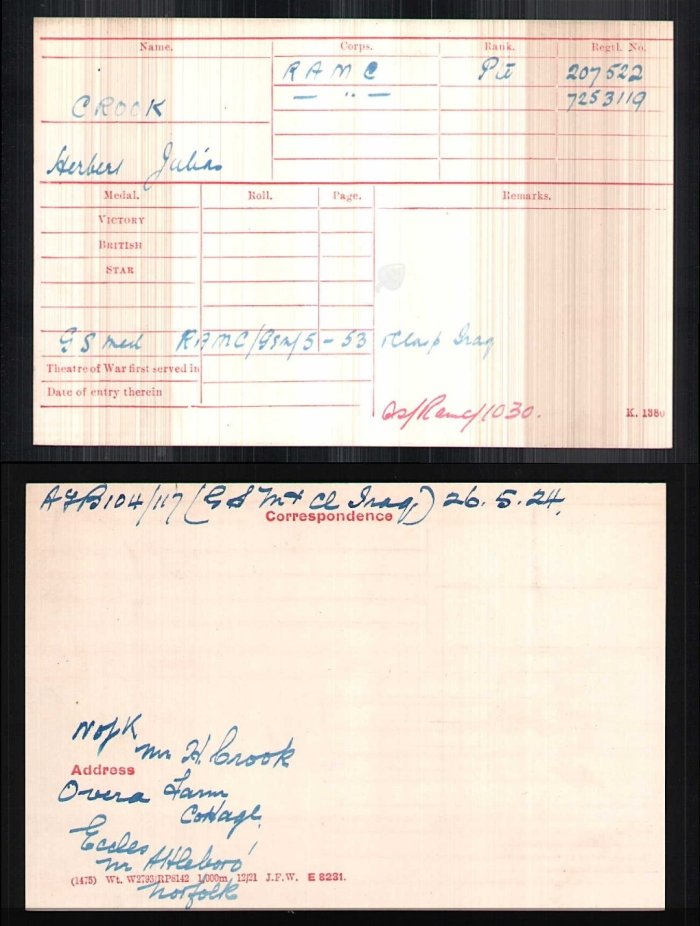 Name. Corps. Rank. Regtl. No.
R A M C Pte 207522
— " — 7253119
CROOK
Herbert Julian
Medal. Roll. Page. Remarks.
VICTORY
BRITISH
STAR
G S Med RAMC/GSM/5 - 53 + Clasp Iraq
Theatre of War first served in
Date of entry therein
1030. K. 1380
AFB104/117 (G S M + Cl Iraq.) 26. 5. 24.
Correspondence
Nofk
Mr H. Crook
Address
Overa Farm
Cottage.
Eccles
nr Attleboro'
(1475) Wt. W2793/RP8142 1/000m 12/21 J.F.W. E 8231.
Norfolk